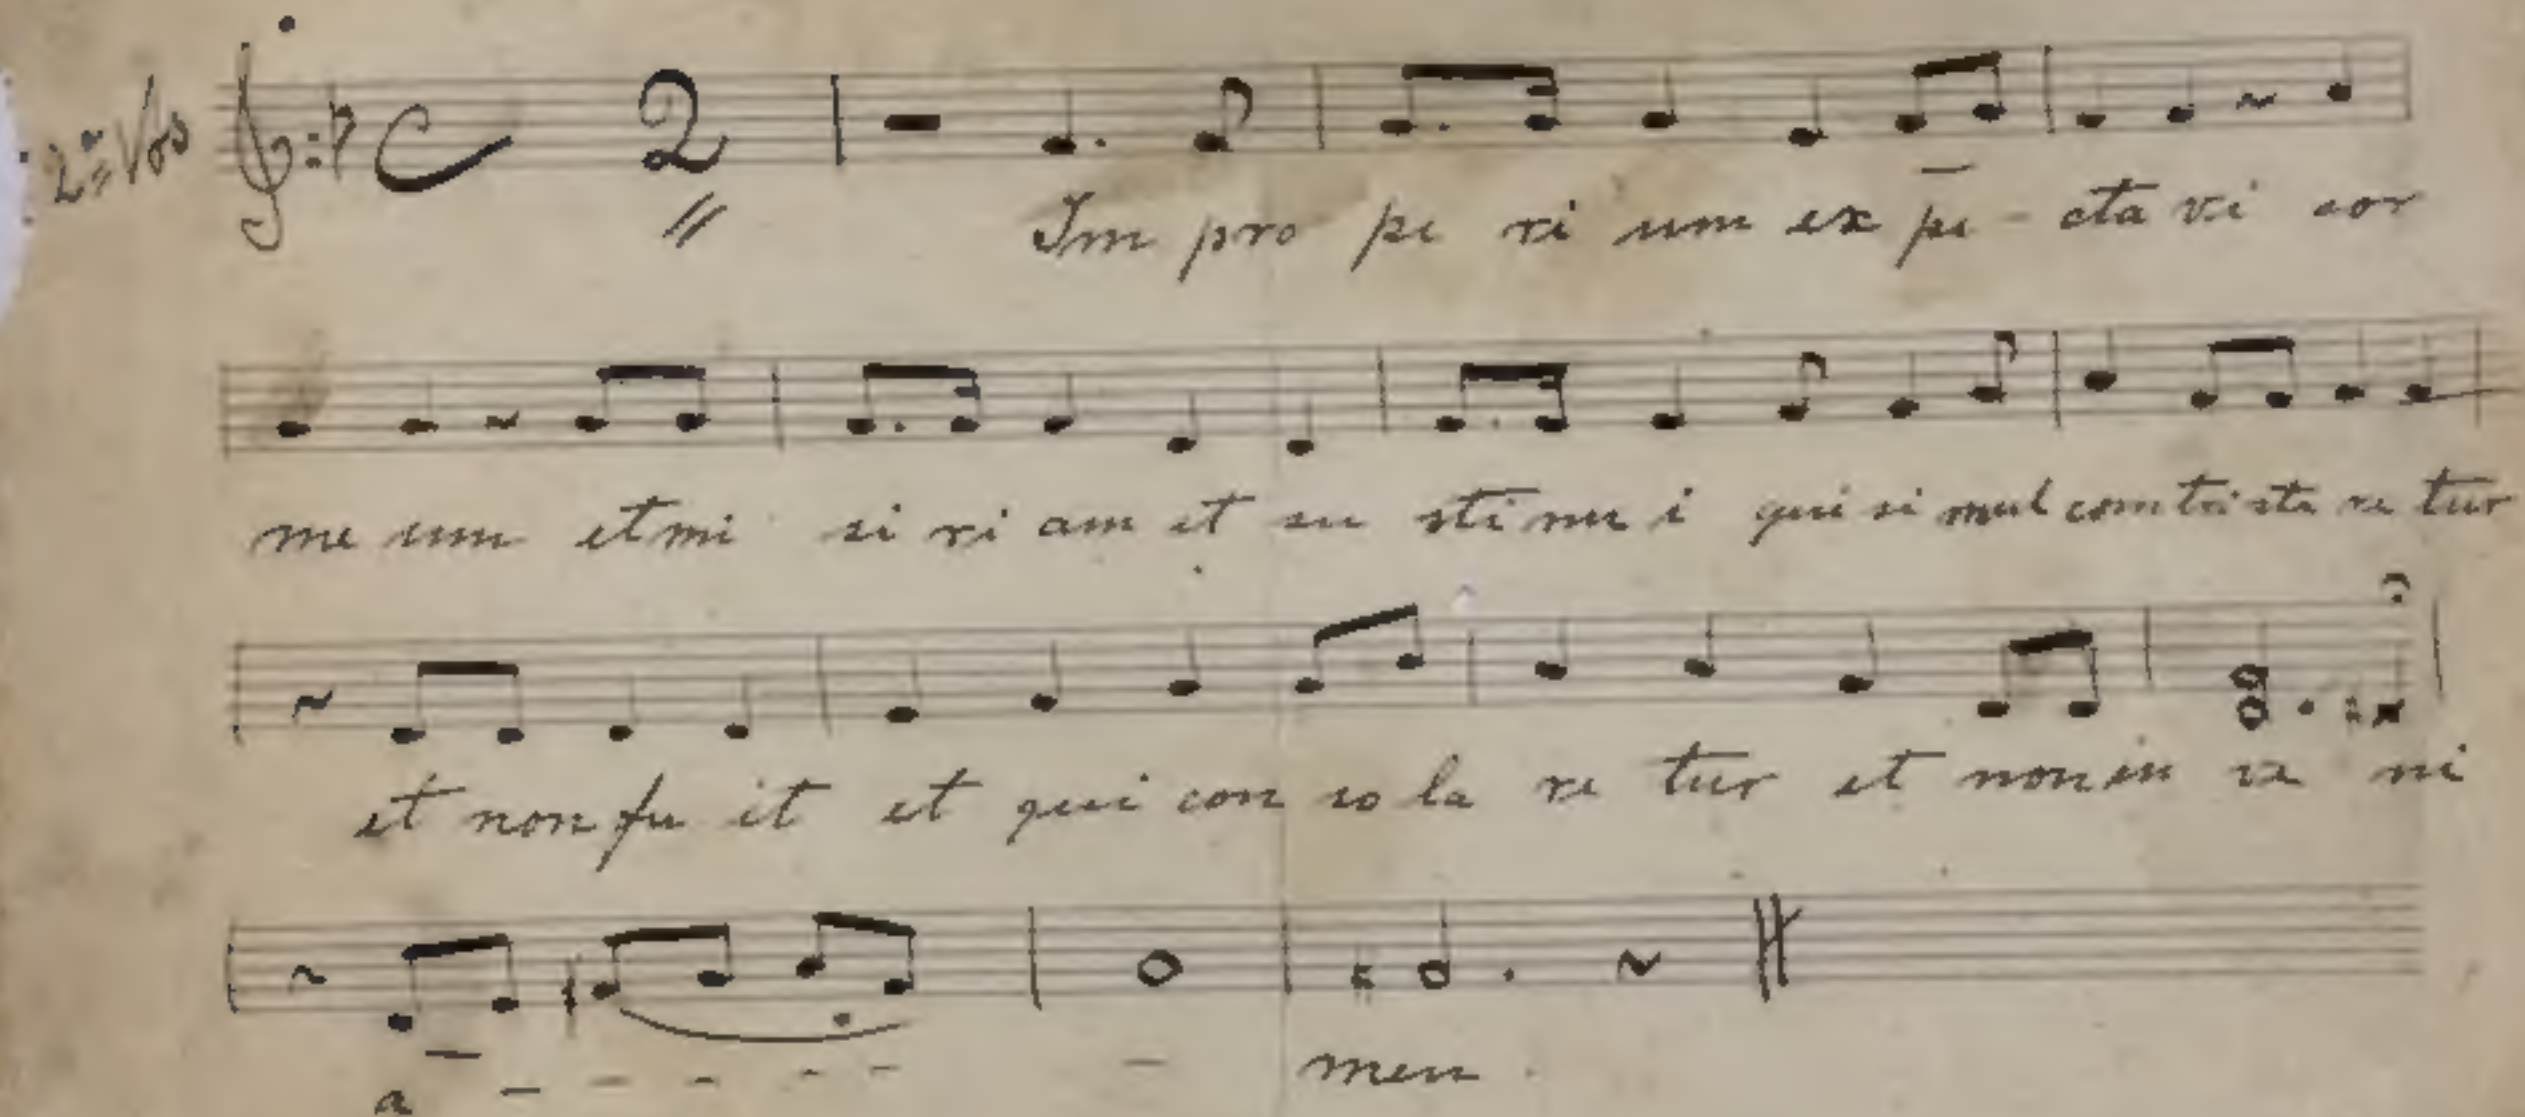 2ª Vos
2
Im pro pe ri um ex pe - cta vi cor
me um et mi si ri am et su sti nu i qui si mul com tri sta re tur
et non fu it et qui con so la re tur et non in ve ni
a - - - - - - - men